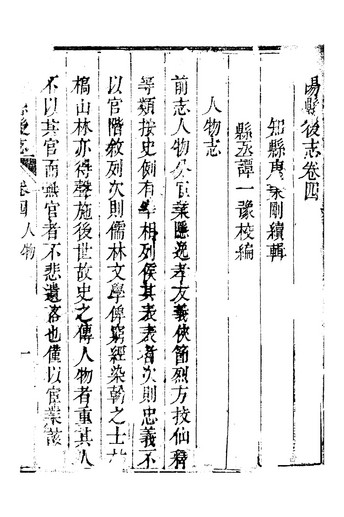 縣後志卷四
知縣 剛續輯
縣丞譚一豫校編
人物志
前志人物分宦業隱逸孝友義俠節烈方技仙釋
等類按史例有 相列侯其表表者次則忠義不
以官階敘列次則儒林文學俾窮經染翰之士
槁山林亦得聲施後世故史之傳人物者重其人
不以其官而無官者不悲遺落也僅以宦業該
卷四 人物 一